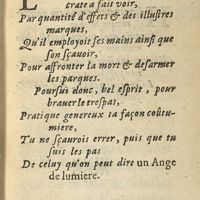 trate a fait voir,
Par quantité d'effets & des illustres
marques,
Qu'il employoit ses mains ainsi que
son sçavoir,
Pour affronter la mort & desarmer
les parques.
Poursui donc, bel esprit, pour
brauer le trespas,
Pratique genereux ta façon coûtu-
miere,
Tu ne sçaurois errer, puis que tu
suis les pas
De celuy qu'on peut dire un Ange
de lumiere.